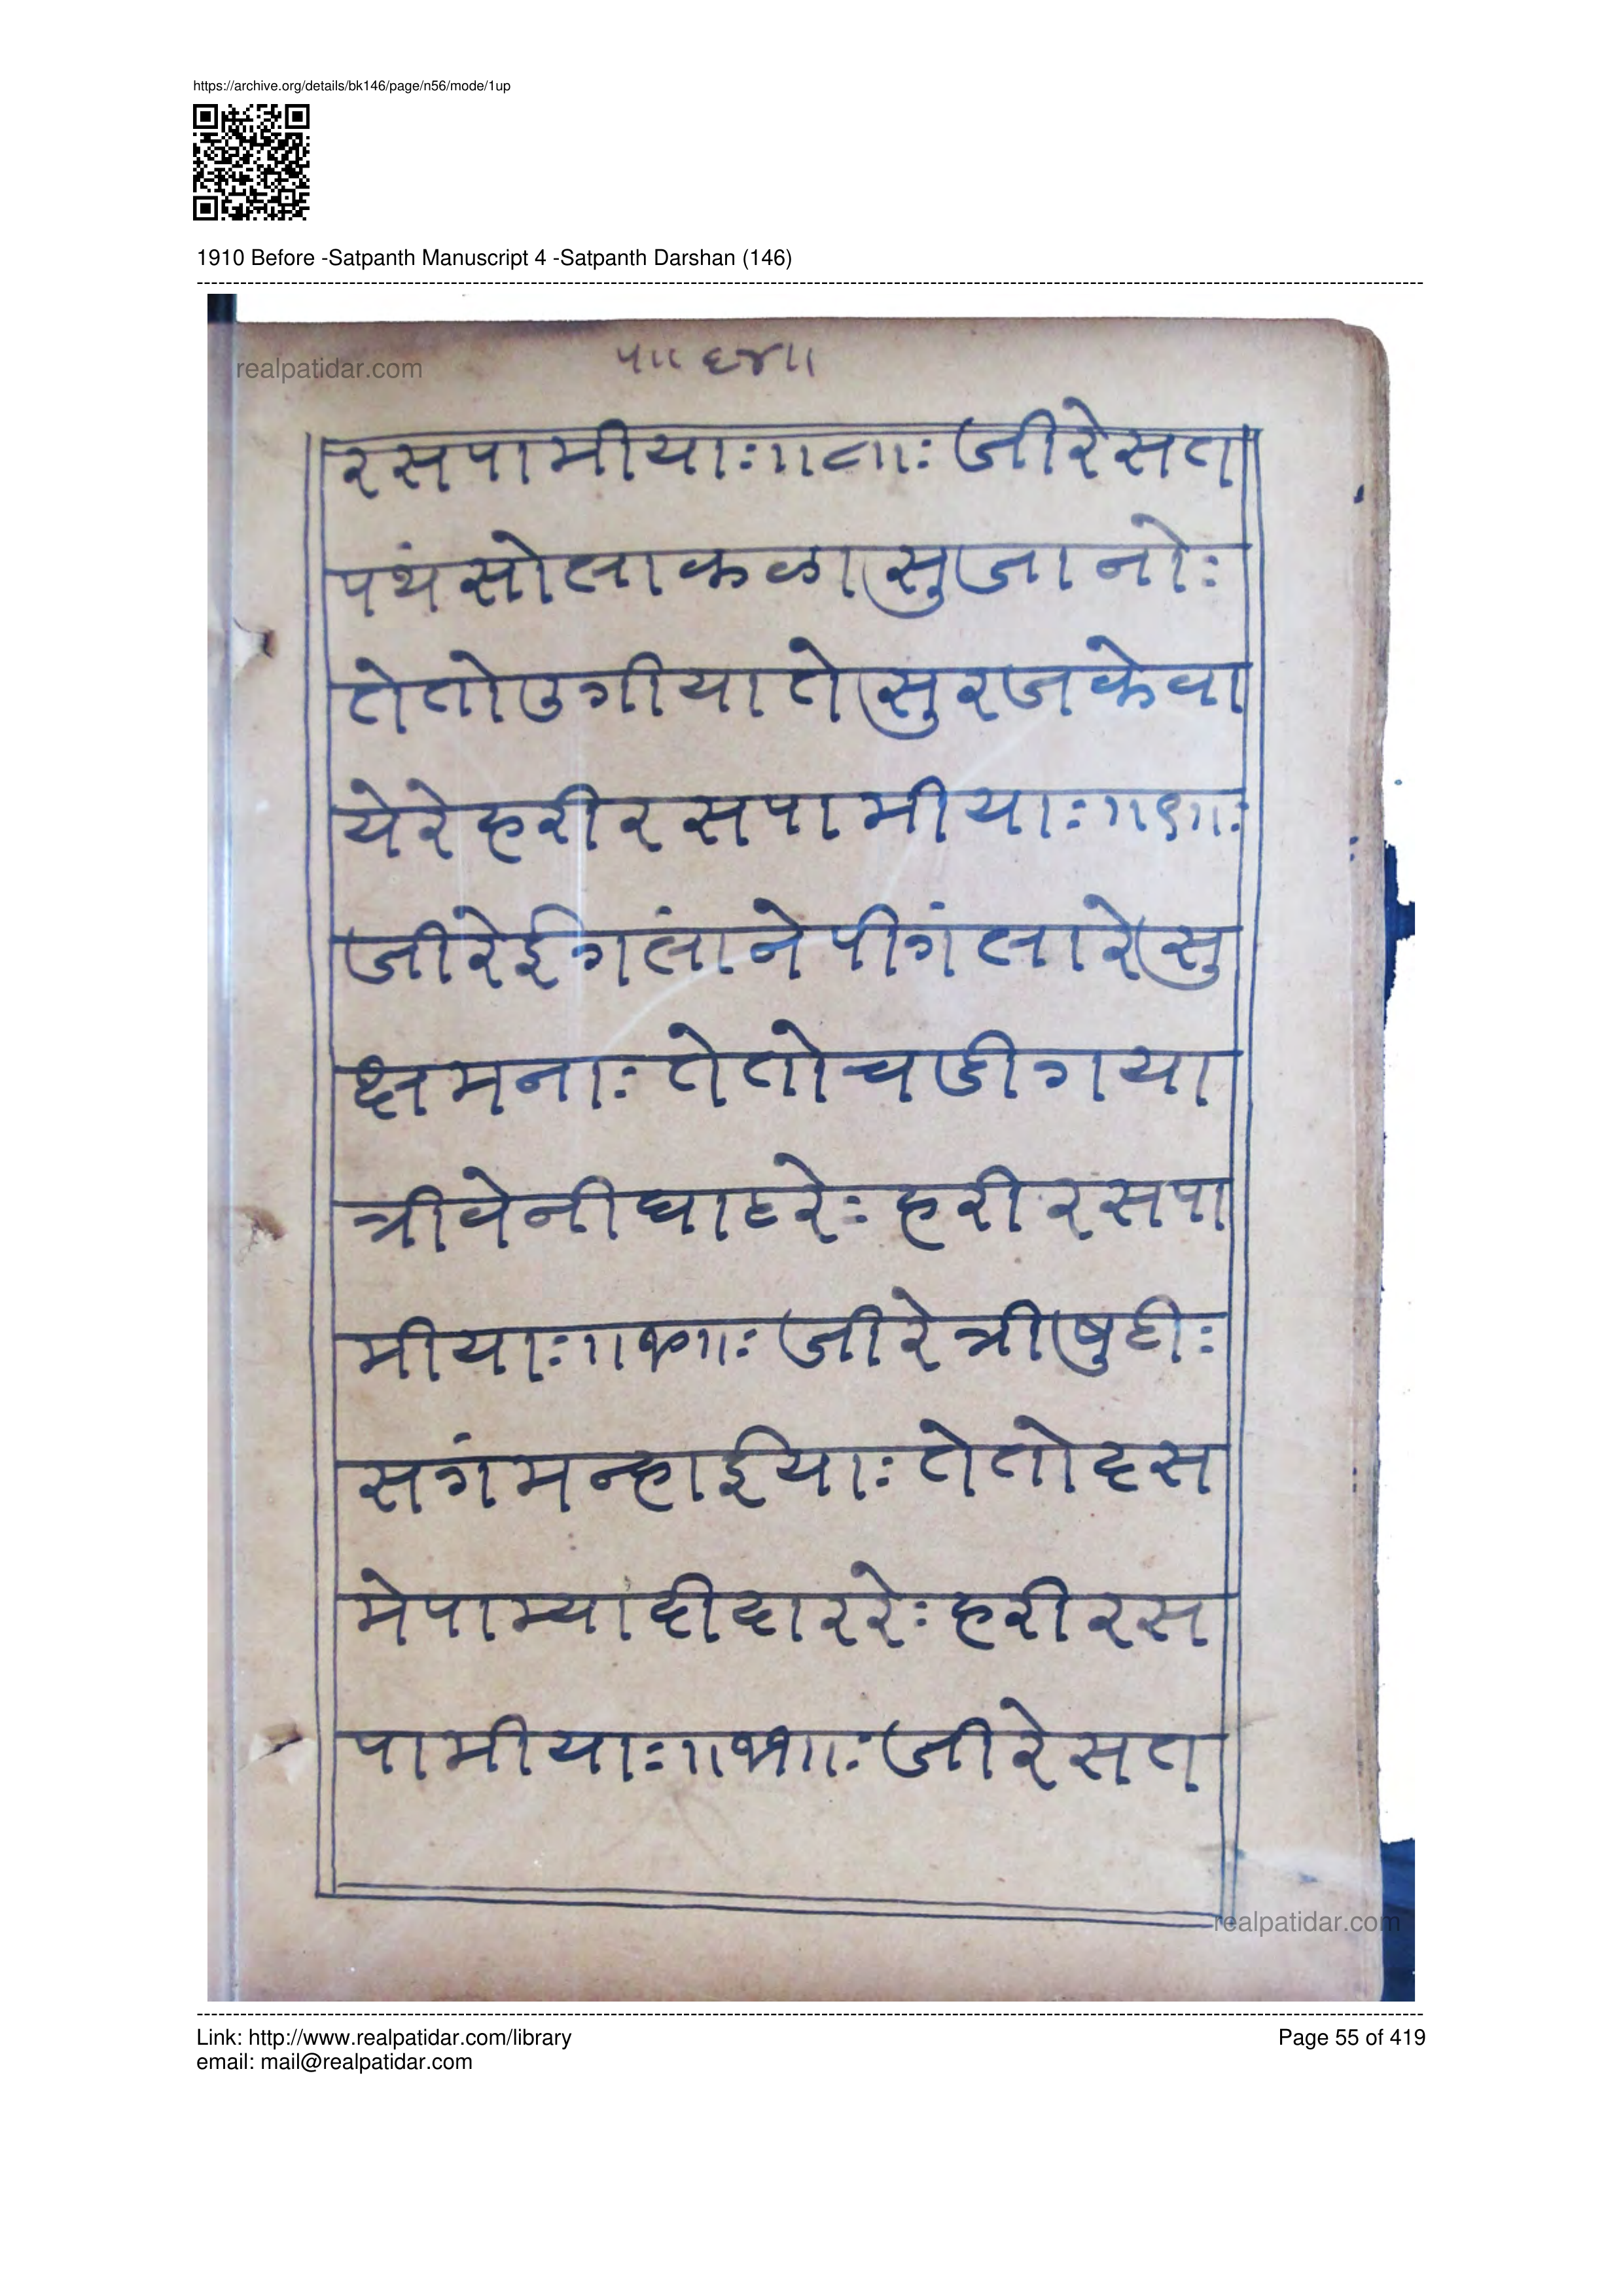 https://archive.org/details/bk146/page/n56/mode/1up
1910 Before -Satpanth Manuscript 4 -Satpanth Darshan (146)
realpatidar.com
५॥ ६४॥
रसपामीयाः॥८॥ः जीरेसत
पथंसोलाकळासुजानोः
तेतोउगीयातेसुरजकेवा
येरेहरीरसपामीयाः॥९॥ः
जीरेईगलांनेपीगंलारेसु
क्षमनाः तेतोचडीगया
त्रीवेनीघाटरेः हरीरसपा
मीयाः॥१०॥ः जीरेत्रीषुटीः
सगंमन्हाईयाः तेतोहस
मेपाम्यादीदाररेः हरीरस
पामीयाः॥११॥ः जीरेसत
realpatidar.com
Link: http://www.realpatidar.com/library
Page 55 of 419
email: mail@realpatidar.com